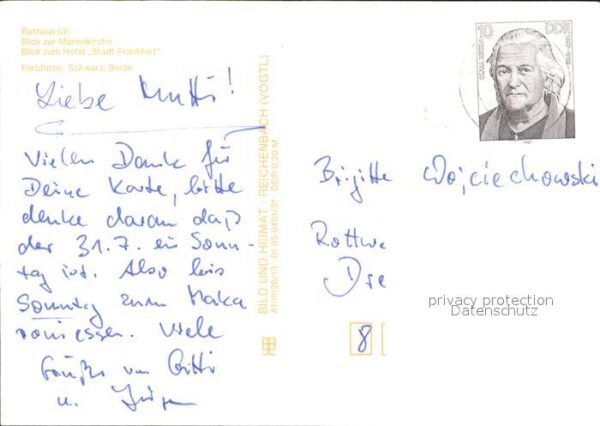 Rathaus (3)
Blick zur Marienkirche
Blick zum Hotel „Stadt Frankfurt“
Farbfotos: Schwarz, Berlin
Liebe Mutti!
Vielen Dank für
Deine Karte, bitte
denke daran daß
der 31.7. ein Sonn-
tag ist. Also bis
Sonntag zum Maka
roniessen. Viele
Grüße von Gitti
u. Jürgen
BILD UND HEIMAT · REICHENBACH (VOGTL)
A1/III/26/13 01 05 0401/31 DDR 0,20 M
10
DDR
Brigitte Wojciechowski
Rottwe
Dre
privacy protection
Datenschutz
8